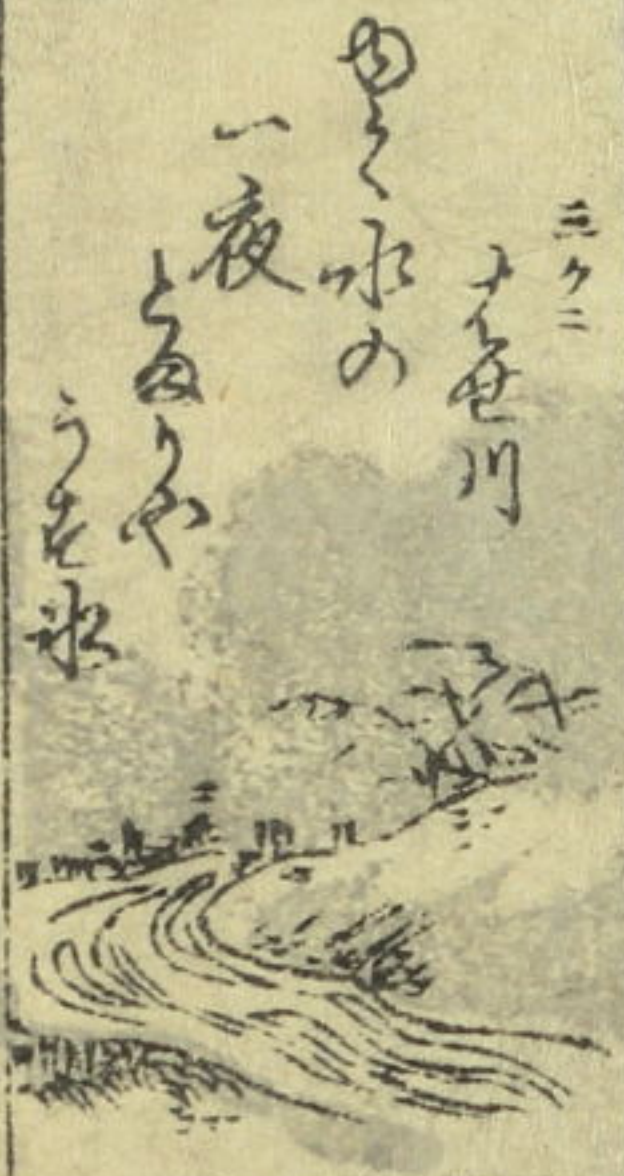 三ケ二
川
ゆく水の
一夜
とまりや
うす氷